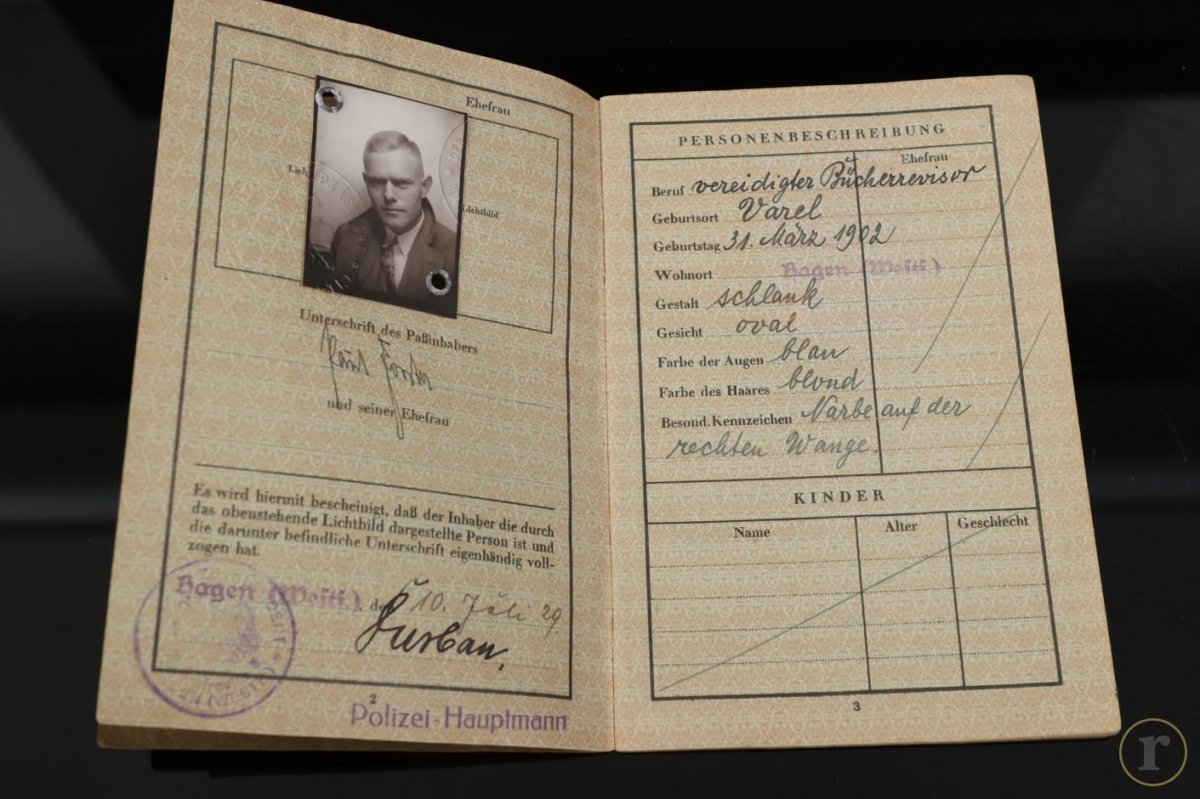 Ehefrau
Lichtbild
Unterschrift des Paßinhabers
und seiner Ehefrau
Es wird hiermit bescheinigt, daß der Inhaber die durch
das obenstehende Lichtbild dargestellte Person ist und
die darunter befindliche Unterschrift eigenhändig voll-
zogen hat.
Hagen (Westf.), den 10. Juli 29
2
Polizei-Hauptmann
PERSONENBESCHREIBUNG
Ehefrau
Beruf vereidigter Bücherrevisor
Geburtsort Varel
Geburtstag 31. März 1902
Wohnort Hagen (Westf.)
Gestalt schlank
Gesicht oval
Farbe der Augen blau
Farbe des Haares blond
Besond. Kennzeichen Narbe auf der
rechten Wange.
KINDER
Name Alter Geschlecht
3
r